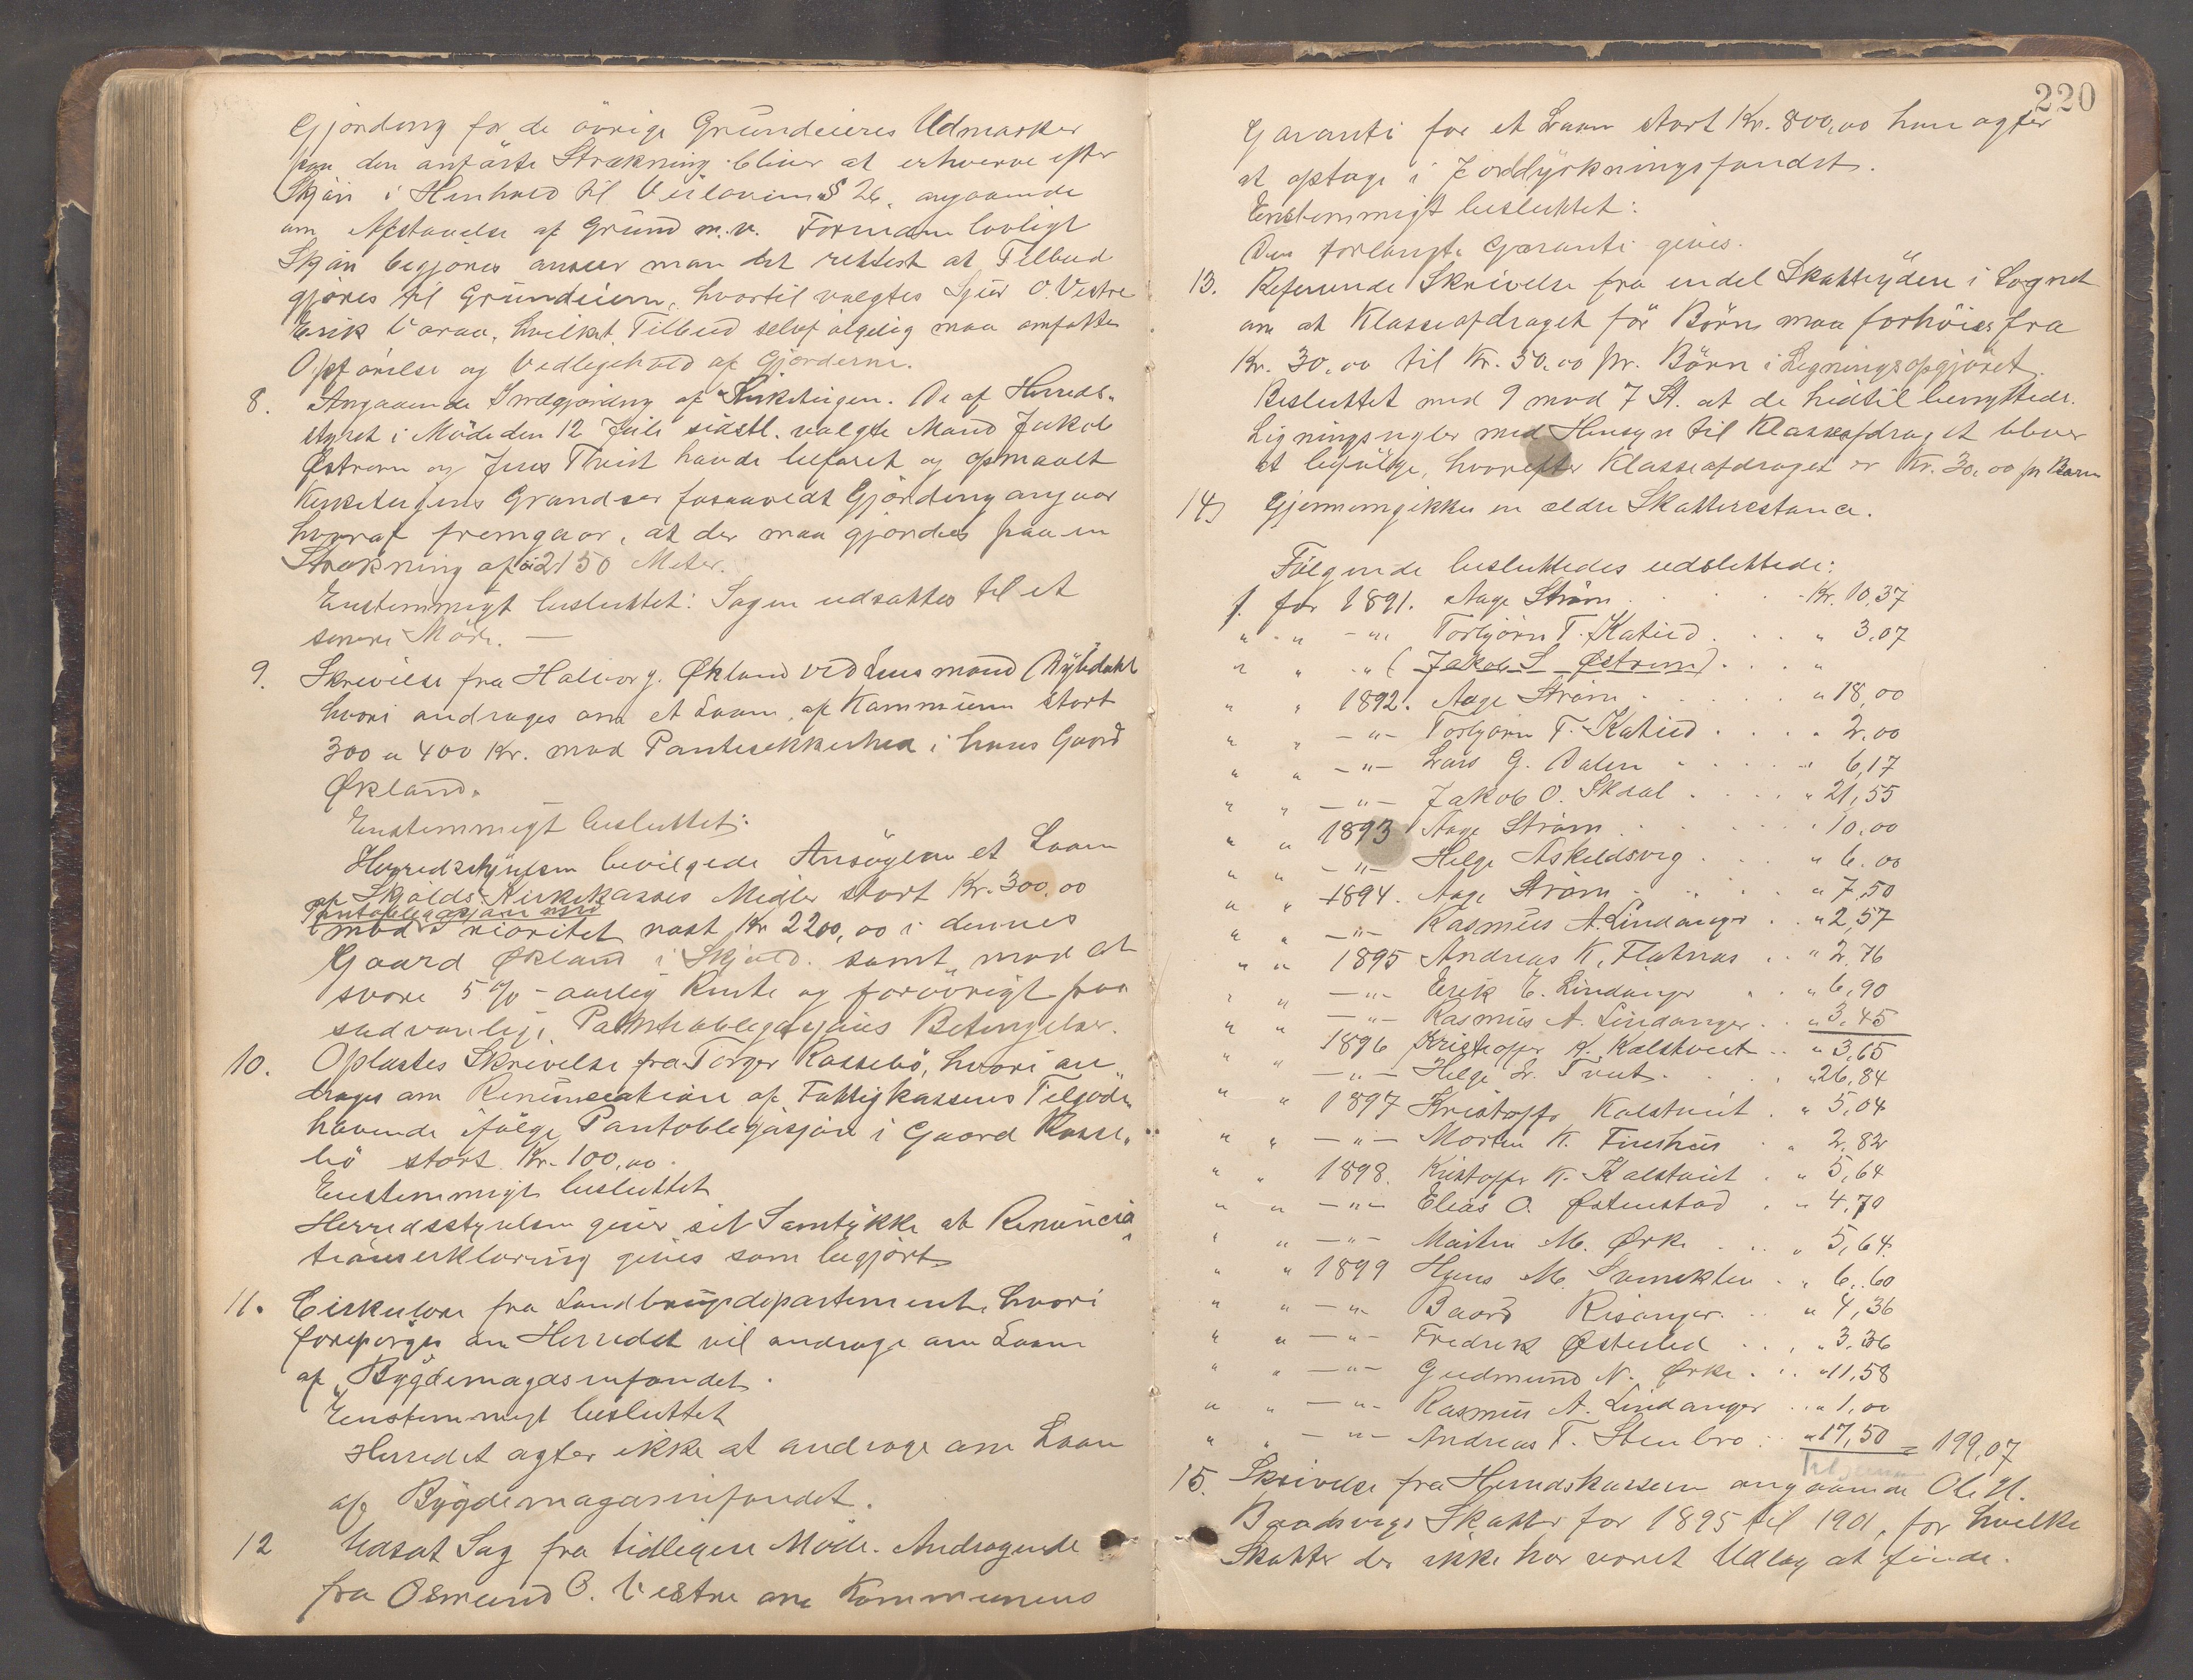 Gjörding for de övrige Grundeieres Udmarker
paa den anförte Strækning bliver at erhverve efter
Skjön i Henhold til Veilovens § 26, angaaende
om Afstaaelse af Grund m.v. Forinden lovligt
Skjön begjöres anseer man det rettest at Tilbud
gjöres til Grundeierne, hvortil valgtes Sjur O. Vestre
Erik Varaa, hvilket Tilbud selvfölgelig maa omfatte
Opförelse og Vedligehold af Gjorderne.
8. Angaaende Indgjording af Kirketeigen. De af Herreds-
styret i Möde den 12 Juli sidstl. valgte Mænd Jakob
Østrem og Jens Tveit havde befaret og opmaalt
Kirketeigens Grændser forsaavidt Gjörding angaar
hvoraf fremgaar, at der maa gjördes paa en
Strækning af 2150 Meter.
Enstemmigt besluttet: Sagen udsættes til et
senere Möde. —
9. Skrivelse fra Halvor J. Økland ved Lensmand Dybdahl
hvori andrages om et Laan af Kommunen stort
300 a 400 Kr. mod Pantesikkerhed i hans Gaard
Økland.
Enstemmigt besluttet:
Herredsstyrelsen bevilgede Ansögeren et Laan
af Skjolds Kirkekasses Midler stort Kr. 300.00
Pantobligasjon med
mod Prioritet næst Kr 2200,00 i dennes
Gaard Økland i Skjold. samt mod at
svare 5 % aarlig Rente og forövrigt paa
sædvanlige Pantobligasjons Betingelser.
10. Oplæstes Skrivelse fra Torger Rossebö, hvori an-
drages om Renunciation af Fattigkassens Tilgode-
havende ifölge Pantobligasjon i Gaard Rosse-
bö stort Kr. 100,00.
Enstemmigt besluttet
Herredsstyrelsen giver sit Samtykke at Renuncia-
tionserklæring gives som begjört
11. Cirkulære fra Landbrugsdepartementet, hvori
forespörges om Herredet vil andrage om Laan
af Bygdemagasinfondet.
Enstemmigt besluttet
Herredet agter ikke at andrage om Laan
af Bygdemagasinfondet.
12 Udsat Sag fra tidligere Möde. Andragende
fra Osmund O. Vestre om Kommunens
220
Garanti for et Laan stort Kr. 800,00 han agter
at optage i Jorddyrkningsfondet.
Enstemmigt besluttet:
Den forlangte Garanti gives.
13. Refererede Skrivelse fra endel Skatteydere i Sognet
om at Klasseafdraget for Börn maa forhöies fra
Kr. 30.00 til Kr. 50.00 pr. Börn i Ligningsopgjöret.
Besluttet med 9 mod 7 St. at de hidtil benyttede
Ligningsregler med Hensyn til Klasseafdraget bliver
at befölge, hvorefter Klasseafdraget er Kr. 30.00 pr Barn
14) Gjennemgikkes en ældre Skatterestance.
Fölgende besluttedes udslettede:
f. for 1891. Aage Ström . . . . Kr. 10,37
" " -"- Torbjörn T. Katied . . . " 3.07
" " " (Jakob S Østrem) . . . "
" " 1892. Aage Ström . . . . " 18,00
" " -"- Torbjörn T. Katied . . . . " 2.00
" " -"- Lars G. Dalen . . . . " 6,17
" " -"- Jakob O. Skaal . . . . " 21,55
" " 1893 Aage Ström . . . . " 10.00
" " -"- Helge Askeldsvig . . . " 6.00
" " 1894. Aage Ström . . . . " 7,50
" " -"- Rasmus A. Lindanger . . " 2,57
" " 1895 Andreas K. Flatnæs . . " 2,76
" " -"- Erik E. Lindanger . . " 6,90
" " -"- Rasmus A. Lindanger . . " 3.45
" " 1896 Kristoffer K. Kalstveit . . " 3,65
" " -"- Helge L. Tveit . . . " 26,84
" " 1897 Kristoffer Kalstveit . " 5,04
" " -"- Morten K. Fineshus . " 2,82
" " 1898. Kristoffer K. Kalstveit . " 5,64
" " -"- Elias O. Østenstad . " 4,70
" " -"- Märten M. Ørke . . . " 5,64
" " 1899 Hans M. . " 6.60
" " -"- Baard Risanger . . " 4,36
" " -"- Fredrik Østerled . . . " 3.36
" " -"- Gudmund N. Ørke . . . " 11,58
" " -"- Rasmus A. Lindanger . . " 1,00
" " -"- Andreas T. Stenbro . . " 17,50 = 199,07
15. Skrivelse fra Herredskasseren angaaende Ole H.
Baadsvigs Skatter for 1895 til 1901, for hvilke
Skatter der ikke har været Udlæg at finde.